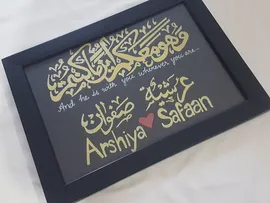 وهو معكم أين ما كنتم
And he is with you wherever you are...
عرشية صفوان
Arshiya Safaan